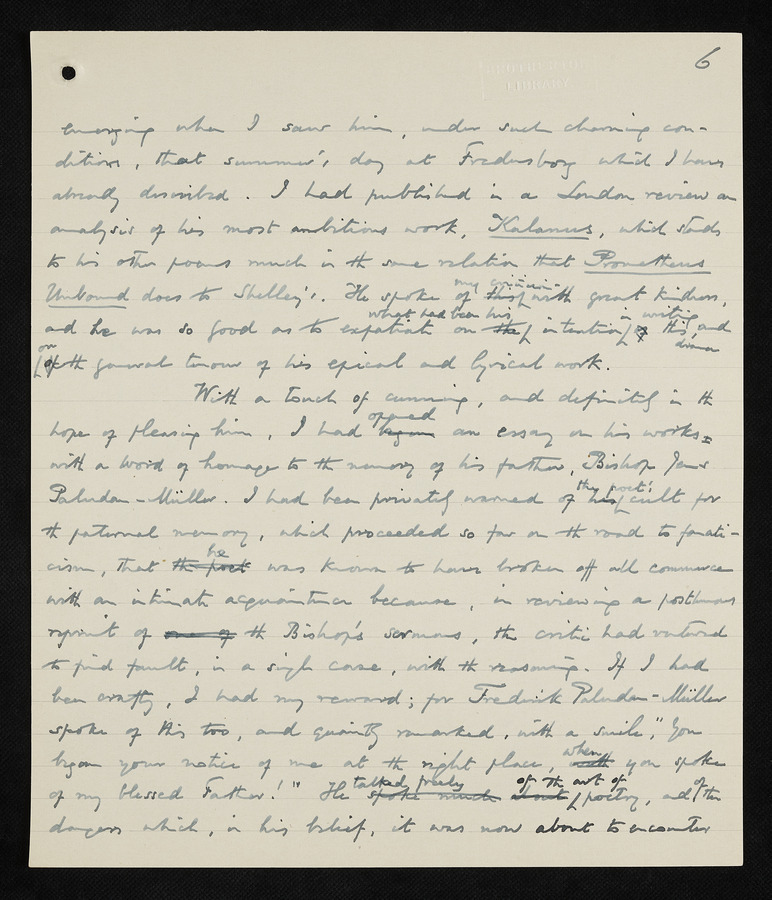 6
BROTHERTON
LIBRARY
emerging when I saw him, under such charming con-
ditions, that summer's day at Fredensborg which I have
already described. I had published in a London review an
analysis of his most ambitious work, Kalanus, which stands
to his other poems much in th same relation that Prometheus
my criticism
Unbound does to Shelley's. He spoke of this with great kindness,
what had been his in writing
and he was so good as to expatiate on the intention of this, and
drama
on
of th general tenour of his epical and lyrical work.
With a touch of cunning, and definitely in th
opened
hope of pleasing him, I had begun an essay on his works
with a word of homage to th memory of his father, Bishop Jens
the poet's
Paludan-Müller. I had been privately warned of his cult for
th paternal memory, which proceeded so far on th road to fanati-
he
cism, that the poet was known to have broken off all commerce
with an intimate acquaintance because, in reviewing a posthumous
reprint of one of th Bishop's sermons, the critic had ventured
to find fault, in a single case, with th reasoning. If I had
been crafty, I had my reward; for Frederik Paludan-Müller
spoke of this too, and quaintly remarked, with a smile, "You
when
began your notice of me at th right place, with you spoke
talked freely of th art of of
of my blessed Father!" He spoke much about poetry, and the
dangers which, in his belief, it was now about to encounter